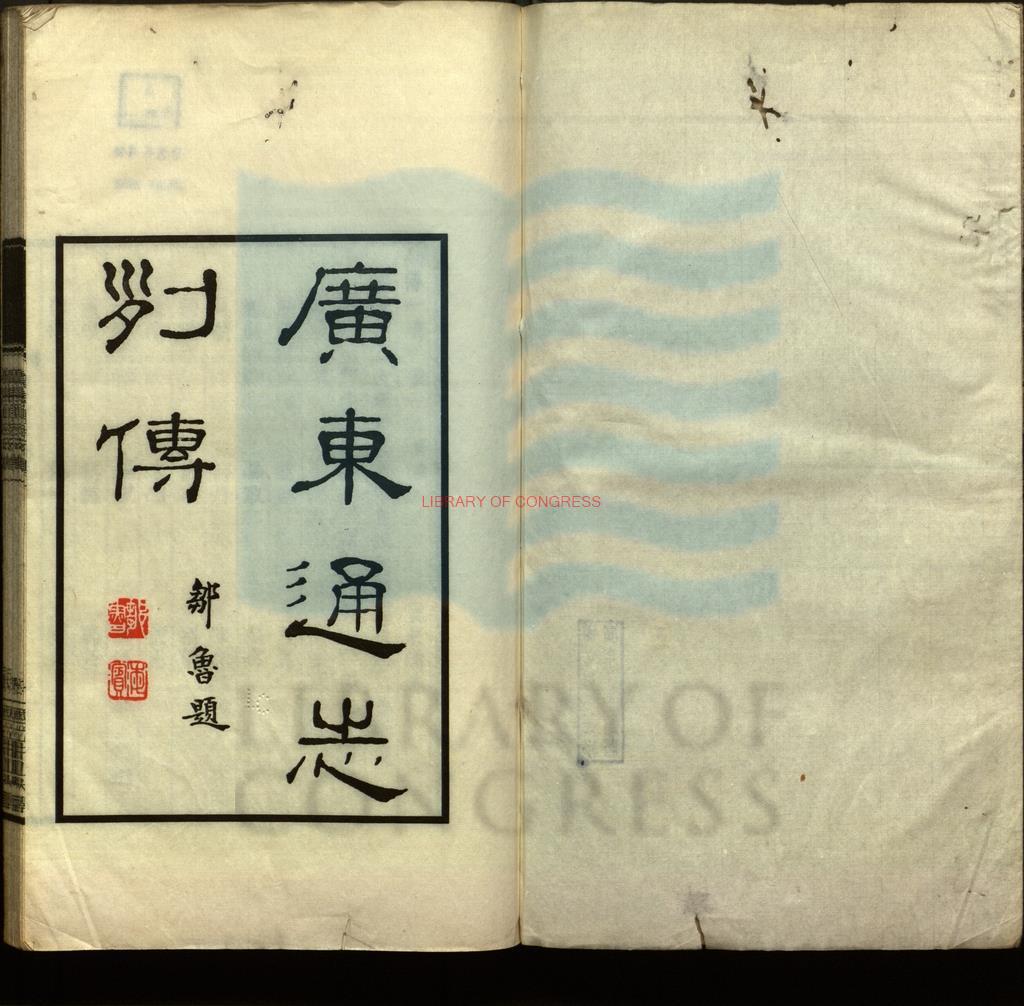 廣東通志
列傳
鄒魯題
LIBRARY OF CONGRESS
LIBRARY OF
CONGRESS